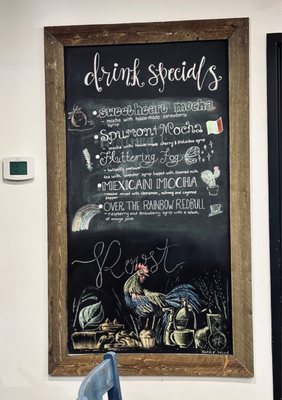 drink specials
Sweetheart Mocha
mocha with house-made strawberry
syrup
Spumoni Mocha
mocha with house-made cherry & pistachio syrup
Fluttering Fog
butterfly
tea with lavender syrup topped with steamed milk
MEXICAN MOCHA
mocha mixed with cinnamon, nutmeg and cayenne
pepper
OVER THE RAINBOW REDBULL
raspberry and strawberry syrup with a splash
of orange juice
Roost